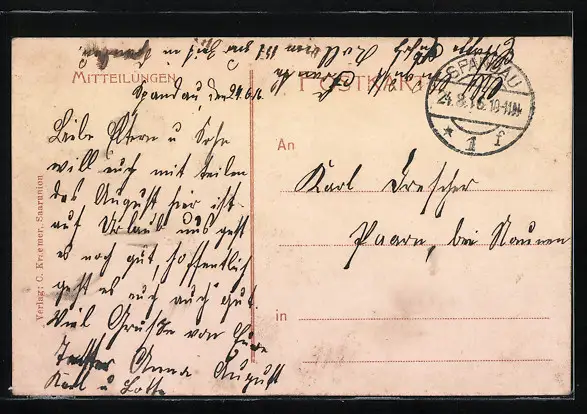 MITTEILUNGEN
POSTKARTE
SPANDAU
24.8.16.10-11V
* 1 f
Spandau, den 24.8.16.
Liebe Eltern u
will euch mit teilen
das August hier ist
auf Urlaub uns geht
es noch gut, hoffentlich
geht es euch auch gut.
Viel Grüße von Eure
Tochter Anna August
Karl u Lotte
An
Karl Drescher
Paaren, bei Nauen
in
Verlag: C. Kraemer, Saarunion